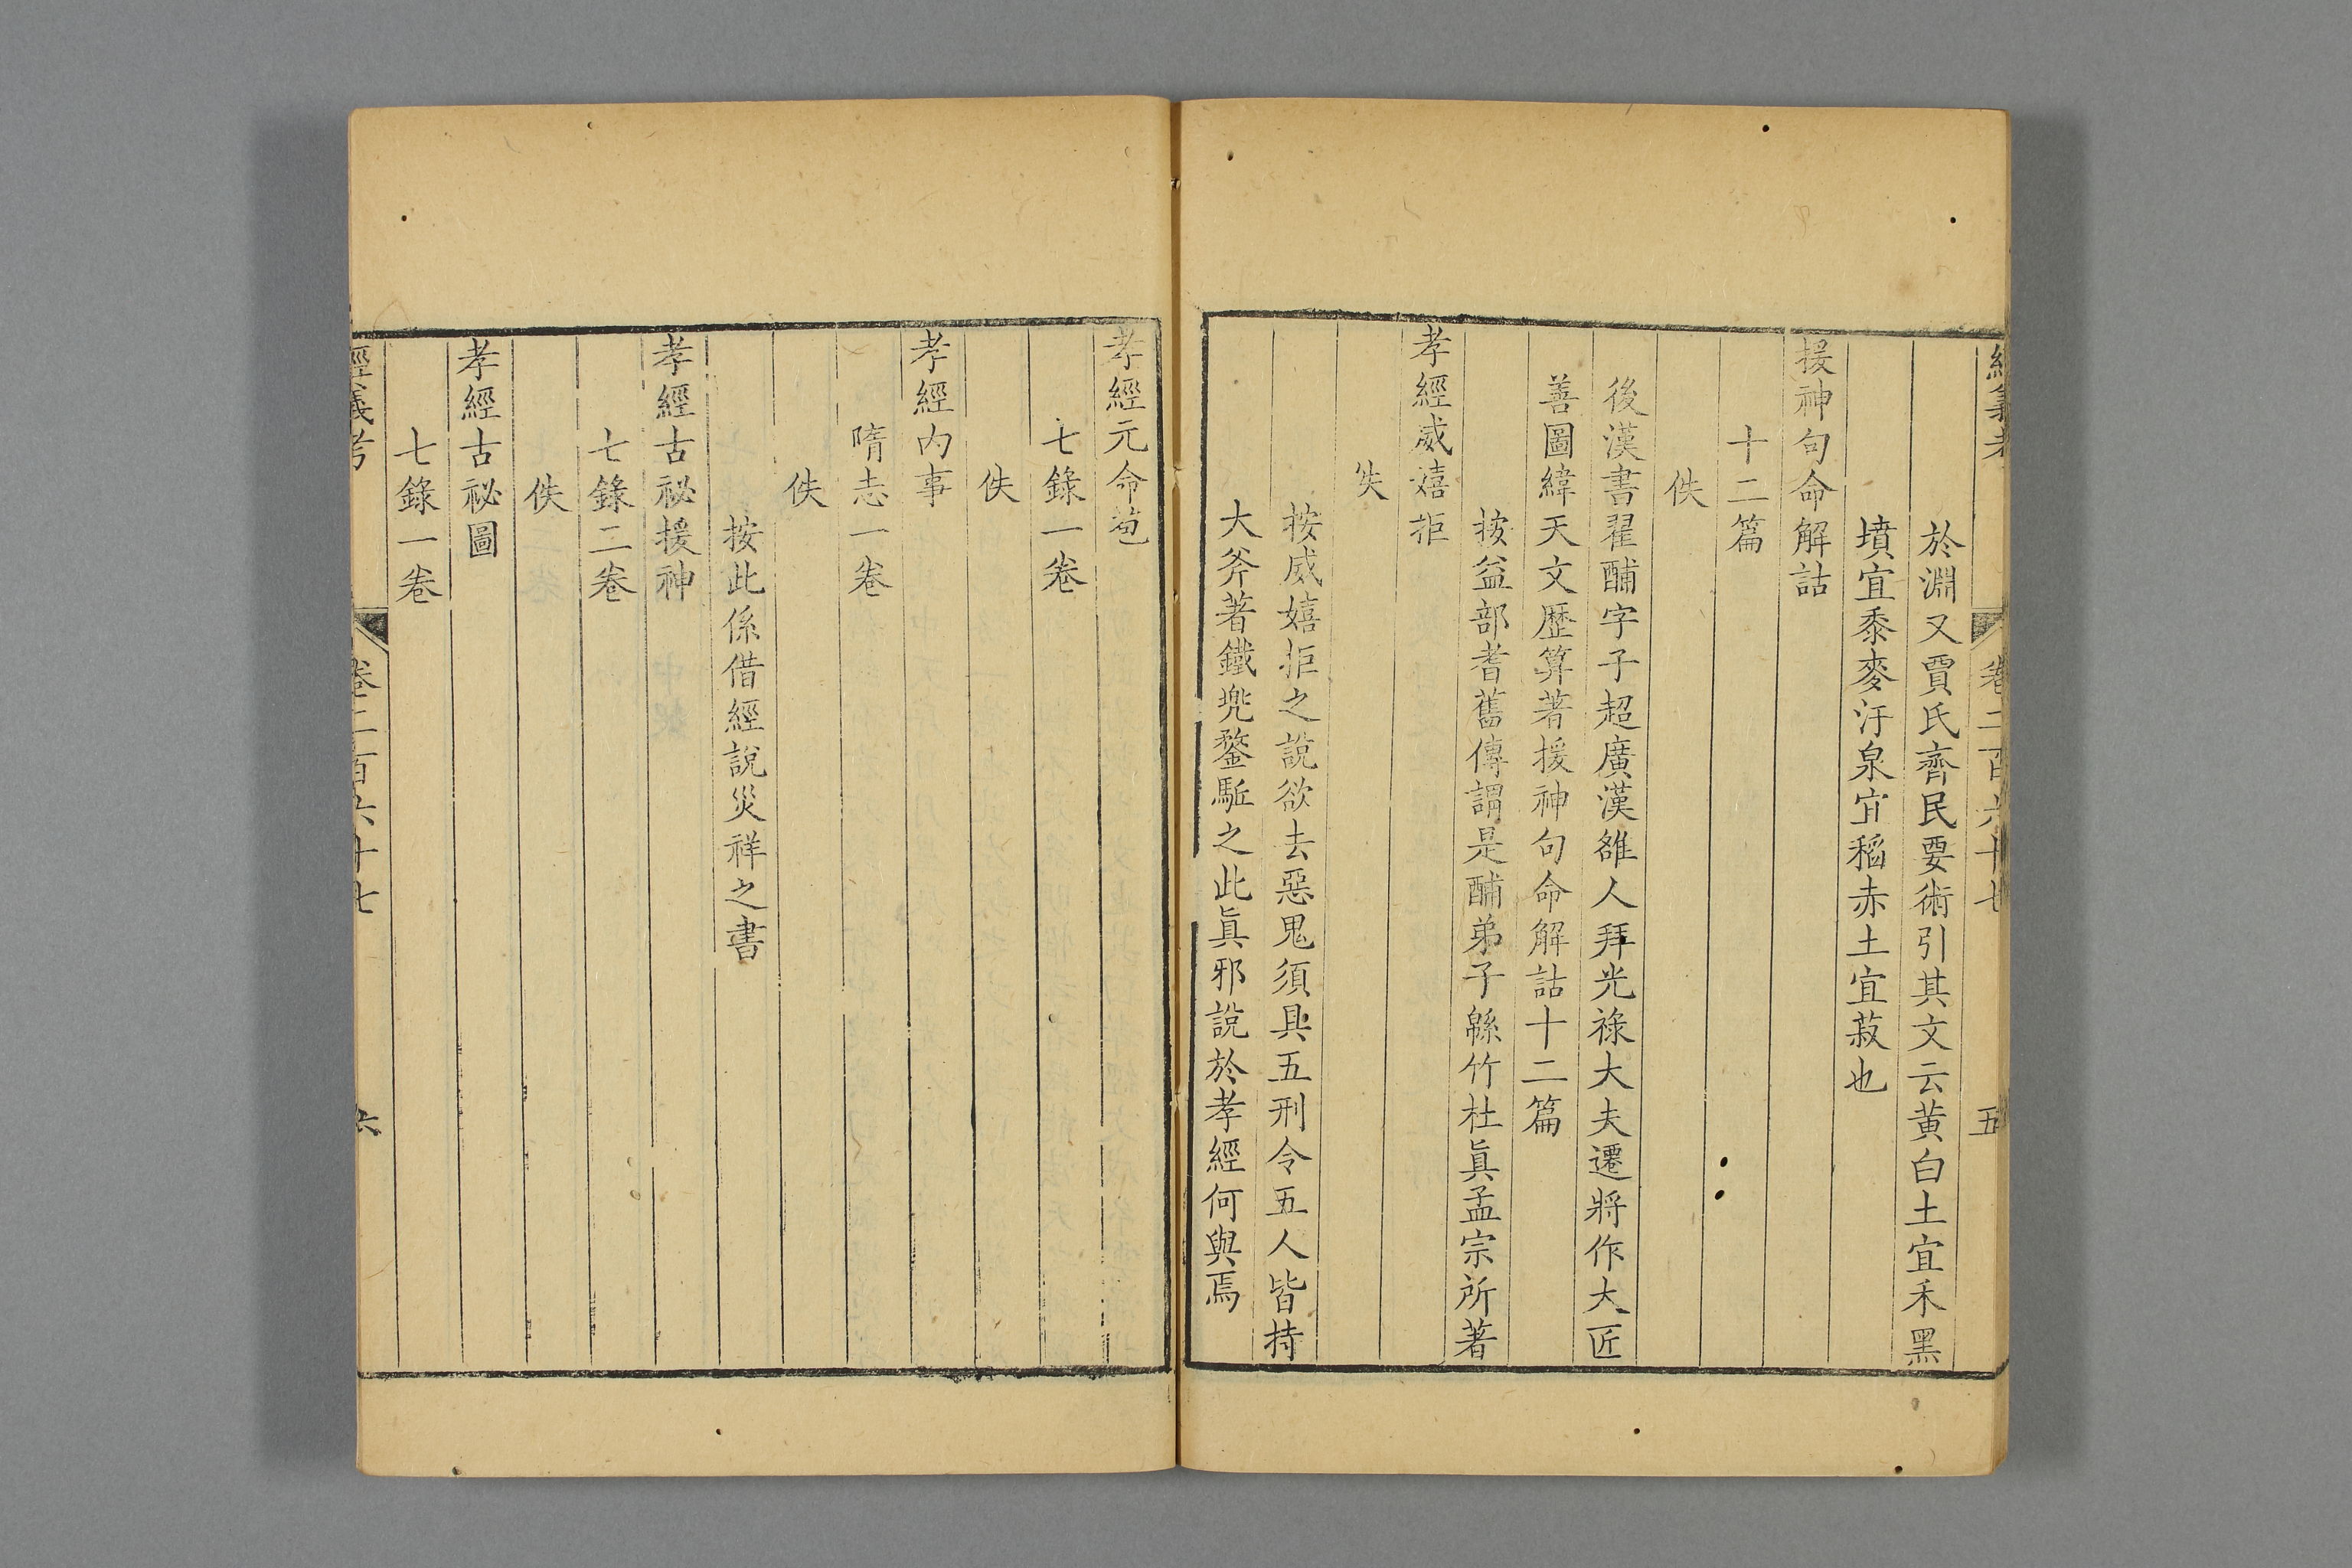 經義考 卷二百六十七 五
於淵又賈氏齊民要術引其文云黄白土宜禾黑
墳宜黍麥汙泉宜稻赤土宜菽也
援神句命解詁
十二篇
佚
後漢書翟酺字子超廣漢雒人拜光祿大夫遷將作大匠
善圖緯天文歷算著援神句命解詁十二篇
按益部耆舊傳謂是酺弟子緜竹杜眞孟宗所著
孝經威嬉拒
佚
按威嬉拒之說欲去惡鬼須具五刑令五人皆持
大斧著鐵兠鍪駈之此眞邪說於孝經何與焉
孝經元命苞
七錄一卷
佚
孝經内事
隋志一卷
佚
按此係借經說災祥之書
孝經古祕援神
七錄二卷
佚
孝經古祕圖
七錄一卷
經義考 卷二百六十七 六